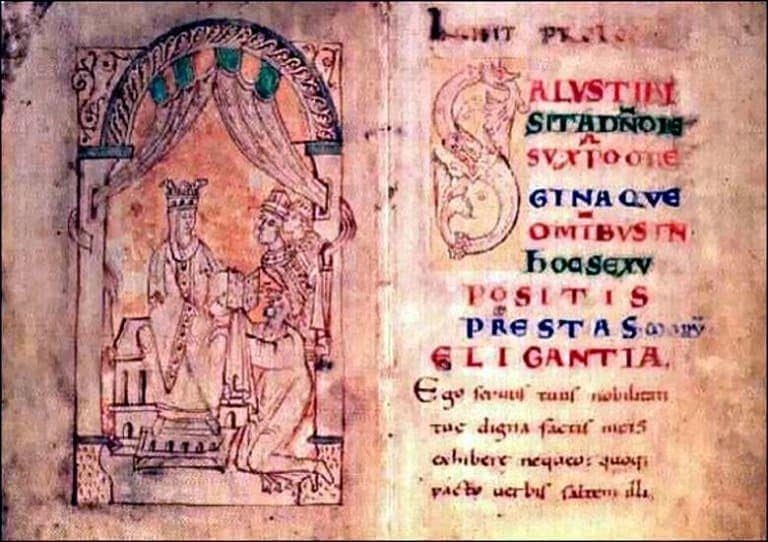 SALVS TIBI
SIT A DÑO IE
SV XPO O RE
GINA QVE
OMIBVS IN
HOC SEXV
POSITIS
PRESTAS
ELIGANTIA.
Ego seruus tuus nobilitati
tue digna factis meis
exhibere nequeo: quoq;
pacto uerbis saltem illi